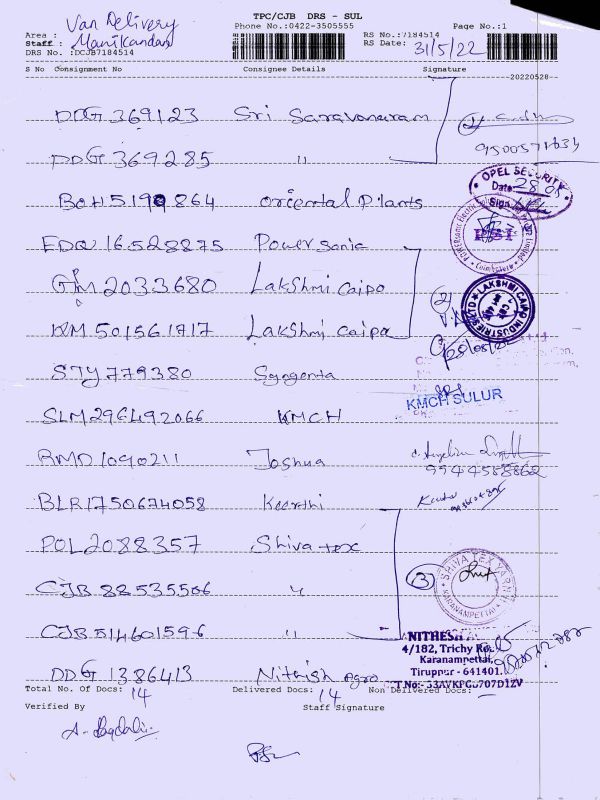 TPC/CJB DRS - SUL
Phone No.:0422-3505555
Page No.:1
Area : Van Delivery
Staff : Manikandan
DRS No. :DCJB7184514
RS No.:7184514
RS Date: 31/5/22
S No Consignment No Consignee Details Signature
20220528
DDG 369123 Sri Saravanaram
9500571634
DDG 369285 "
OPEL SECURITY
Date: 28
Sign
BOH 5190864 Oriental Plants
EDQ 16528875 Power Sonic
PSI
Coimbatore
GM 2033680 Lakshmi Caipo
(2)
LAKSHMI CAIPO INDUSTRIES LTD
KM 501561717 Lakshmi Caipo
STY 779380 Syngenta
KMCH SULUR
SLM 296492066 KMCH
RMD 1090211 Joshua
9944588862
BLR 1750674058 Keerthi
POL 2088357 Shiva tex
SHIVA TEX YARN
KARANAMPETTAI
(3)
CJB 88535506 "
CJB 514601596 "
NITHESH
4/182, Trichy
Karanampettai,
Tiruppur - 641401.
DDG 1386413 Nithish Agro
Total No. Of Docs: 14 Delivered Docs: 14 Non Delivered Docs:
Verified By Staff Signature